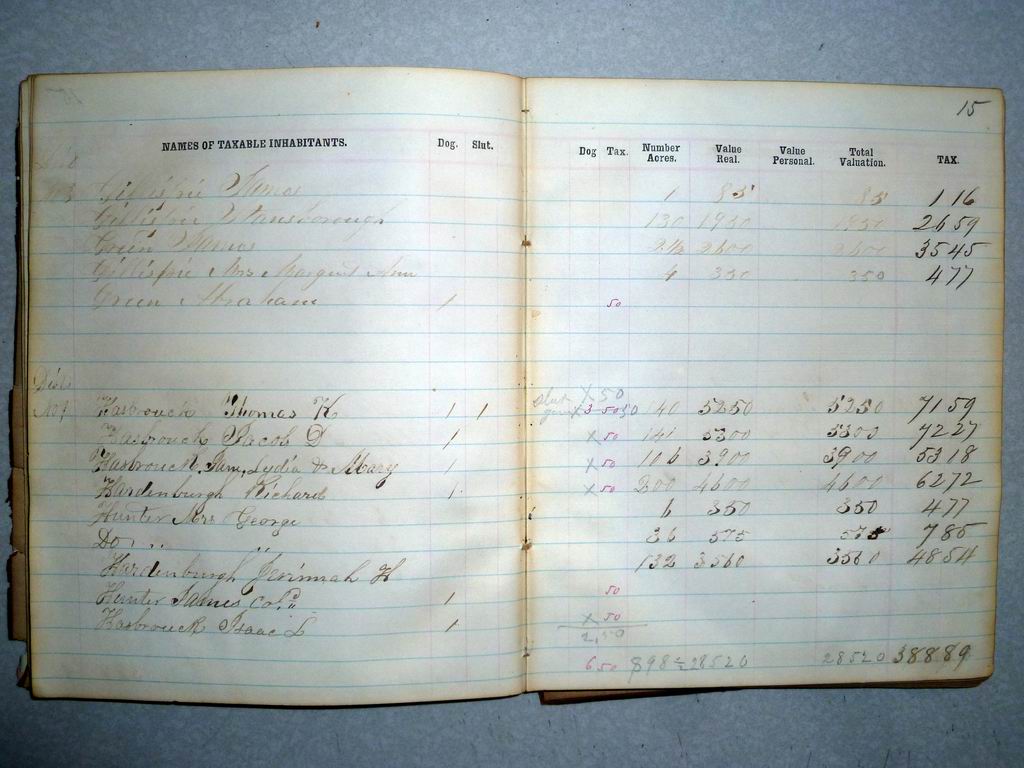 15
NAMES OF TAXABLE INHABITANTS. Dog. Slut. Dog Tax. Number Acres. Value Real. Value Personal. Total Valuation. TAX.
Gillispie James 1 85 85 1 16
Gillispie Wansborough 130 1950 1950 26 59
Green James 2600 2600 35 45
Gillispie Mrs Margaret Ann 4 350 350 4 77
Green Abraham 1 50
Dist
No 1 Hasbrouck Thomas K 1 1 slut X 50 X 3 50 140 5250 5250 71 59
Hasbrouck Jacob D 1 X 50 141 5300 5300 72 27
Hasbrouck, Jam, Lydia & Mary 1 X 50 106 3900 3900 53 18
Hardenburgh Richard 1 X 50 200 4600 4600 62 72
Hunter Mrs George 6 350 350 4 77
Do " " 36 575 575 7 85
Hardenburgh Jerimah H 132 3560 3560 48 54
Hunter James Col'd 1 50
Hasbrouck Isaac L 1 X 50
2,50
6 50 898 1/2 28520 28520 388 89